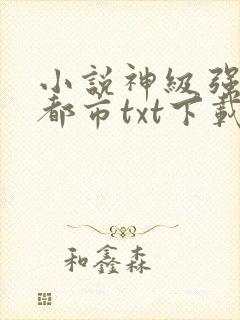 小説神級强
都市txt下載
和鑫森